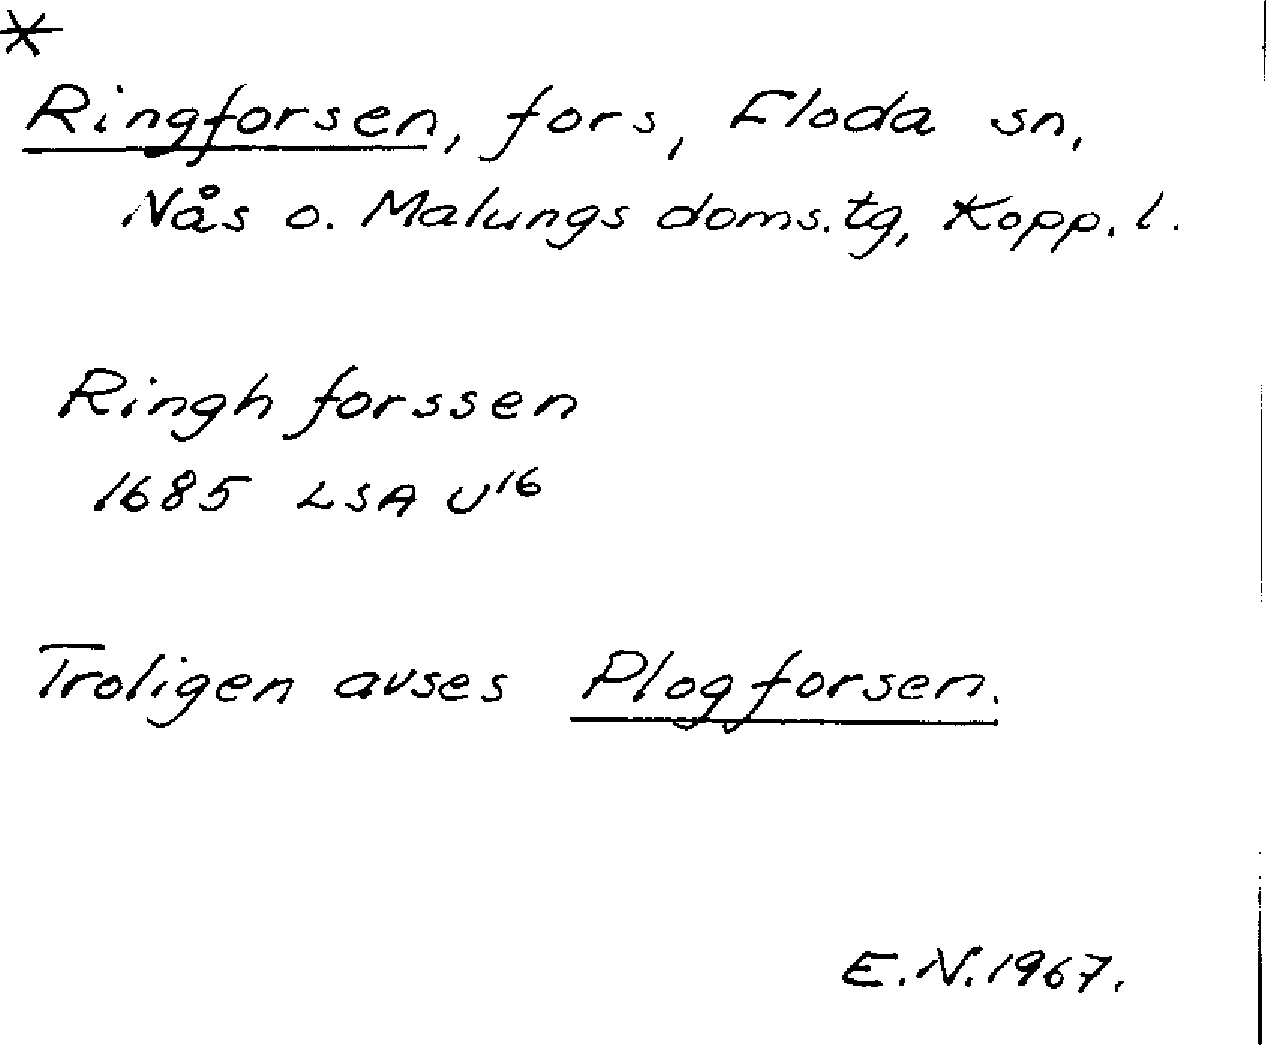 *
Ringforsen, fors, Floda sn,
Nås o. Malungs doms.tg, Kopp. l.
Ringh forssen
1685 LSA U16
Troligen avses Plogforsen.
E.N. 1967.